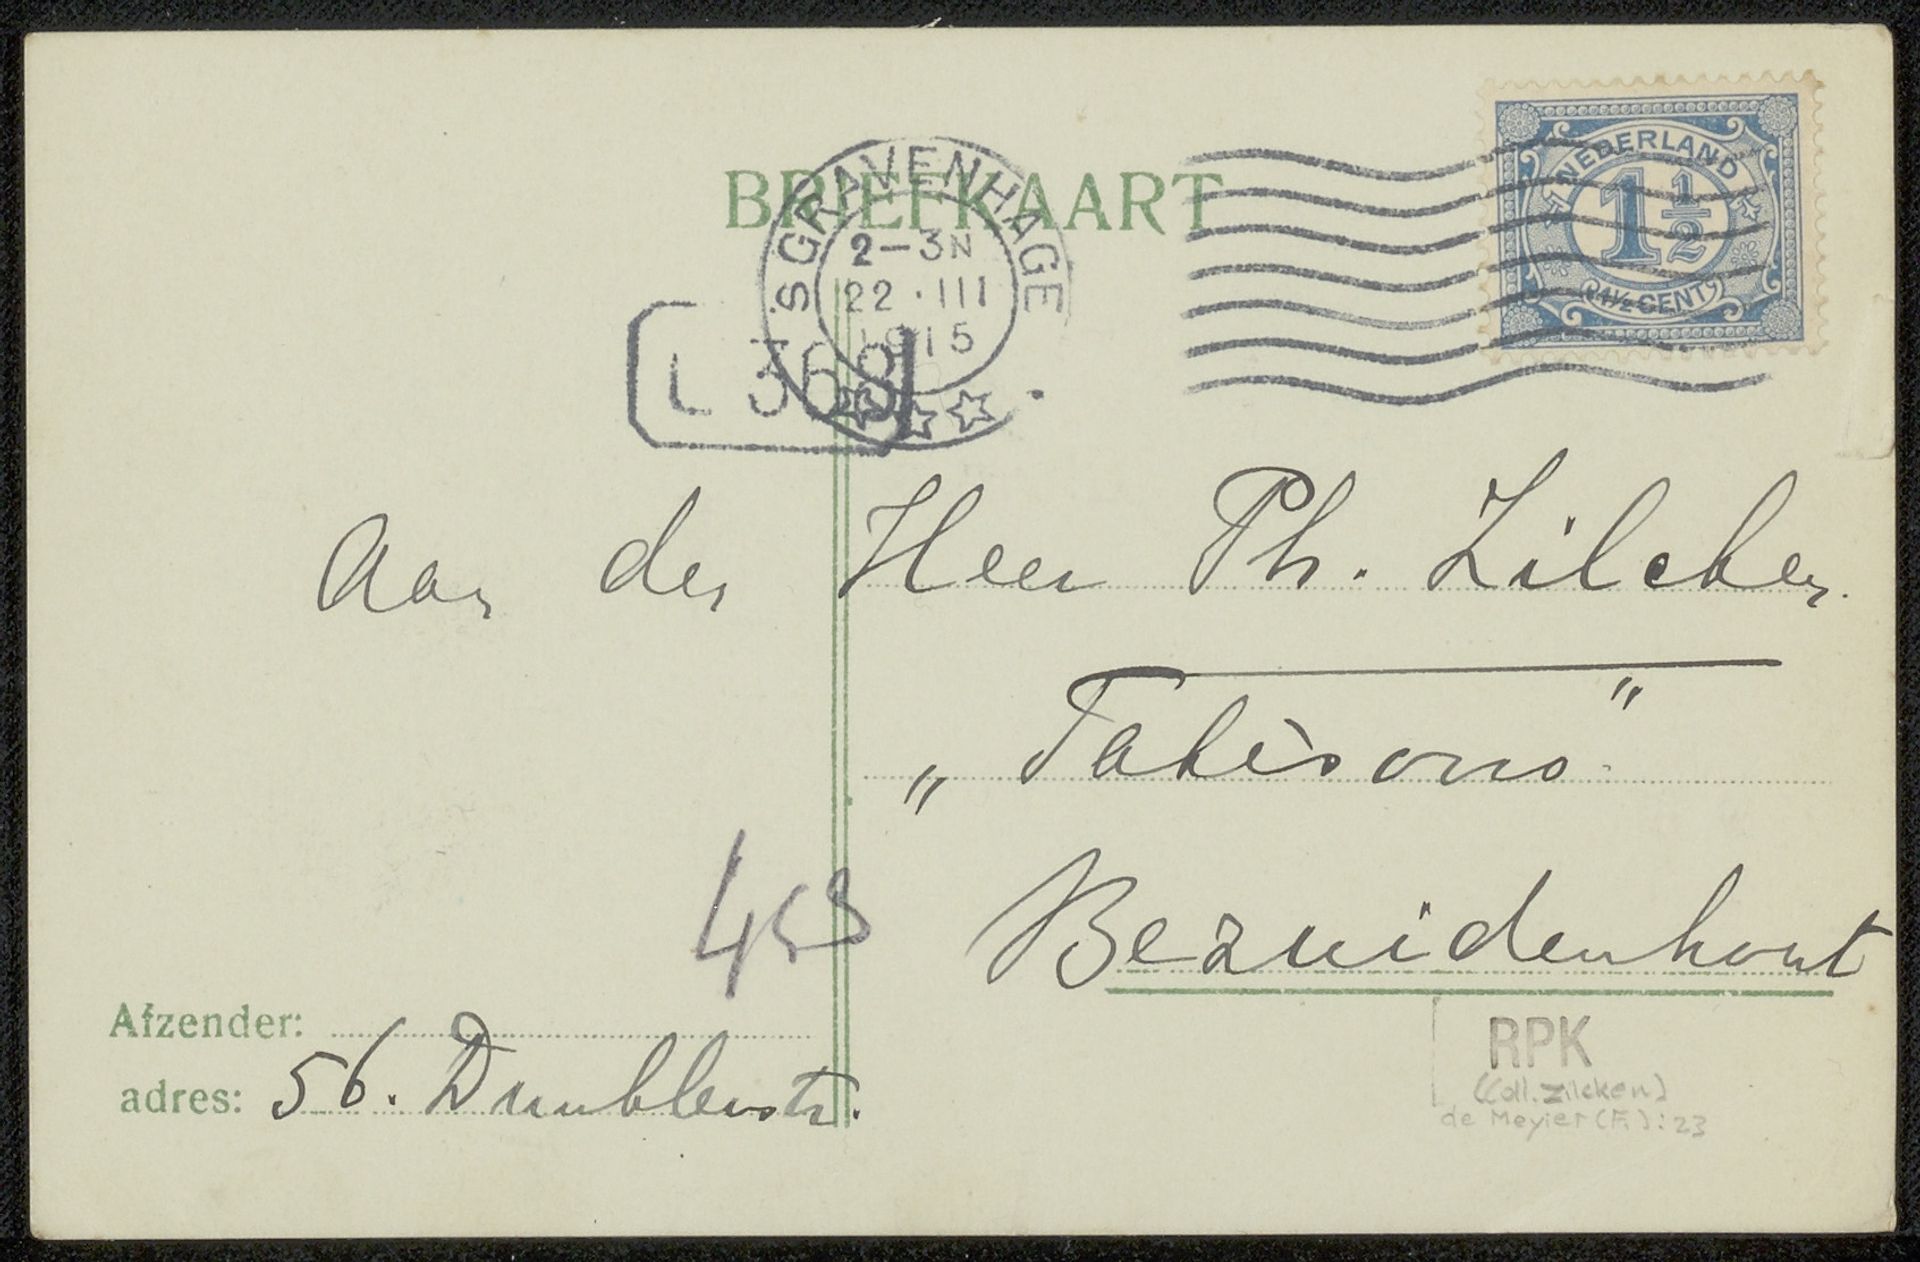 BRIEFKAART
'S GRAVENHAGE
2-3N
22 · III
1915
L 368
NEDERLAND
1 1/2
1 1/2 CENT
Aan den Heer Ph. Zilcken
„Hélène Villa"
Bezuidenhout
Afzender:
adres: 56.
RPK
(Coll. Zilcken)
de Meyier (F.): 23